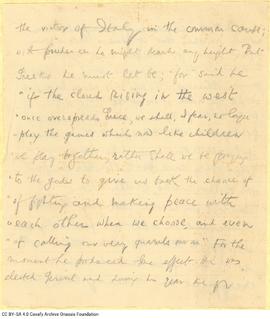 the victor of Italy in the common cause;
prudence he might reach any height. But
Greeks he must let be; "for" said he
"if the clouds rising in the west
"once overspread Greece, we shall, I fear, no longer
"play the games which now like children
we play together, rather shall we be praying
to the gods to give us back the chance of
"of fighting and making peace with
"each other when we choose, and even
"of calling our very quarrels our own" For the
moment he produced the effect. He was
elected General and during his year he
CC BY-SA 4.0 Cavafy Archive Onassis Foundation